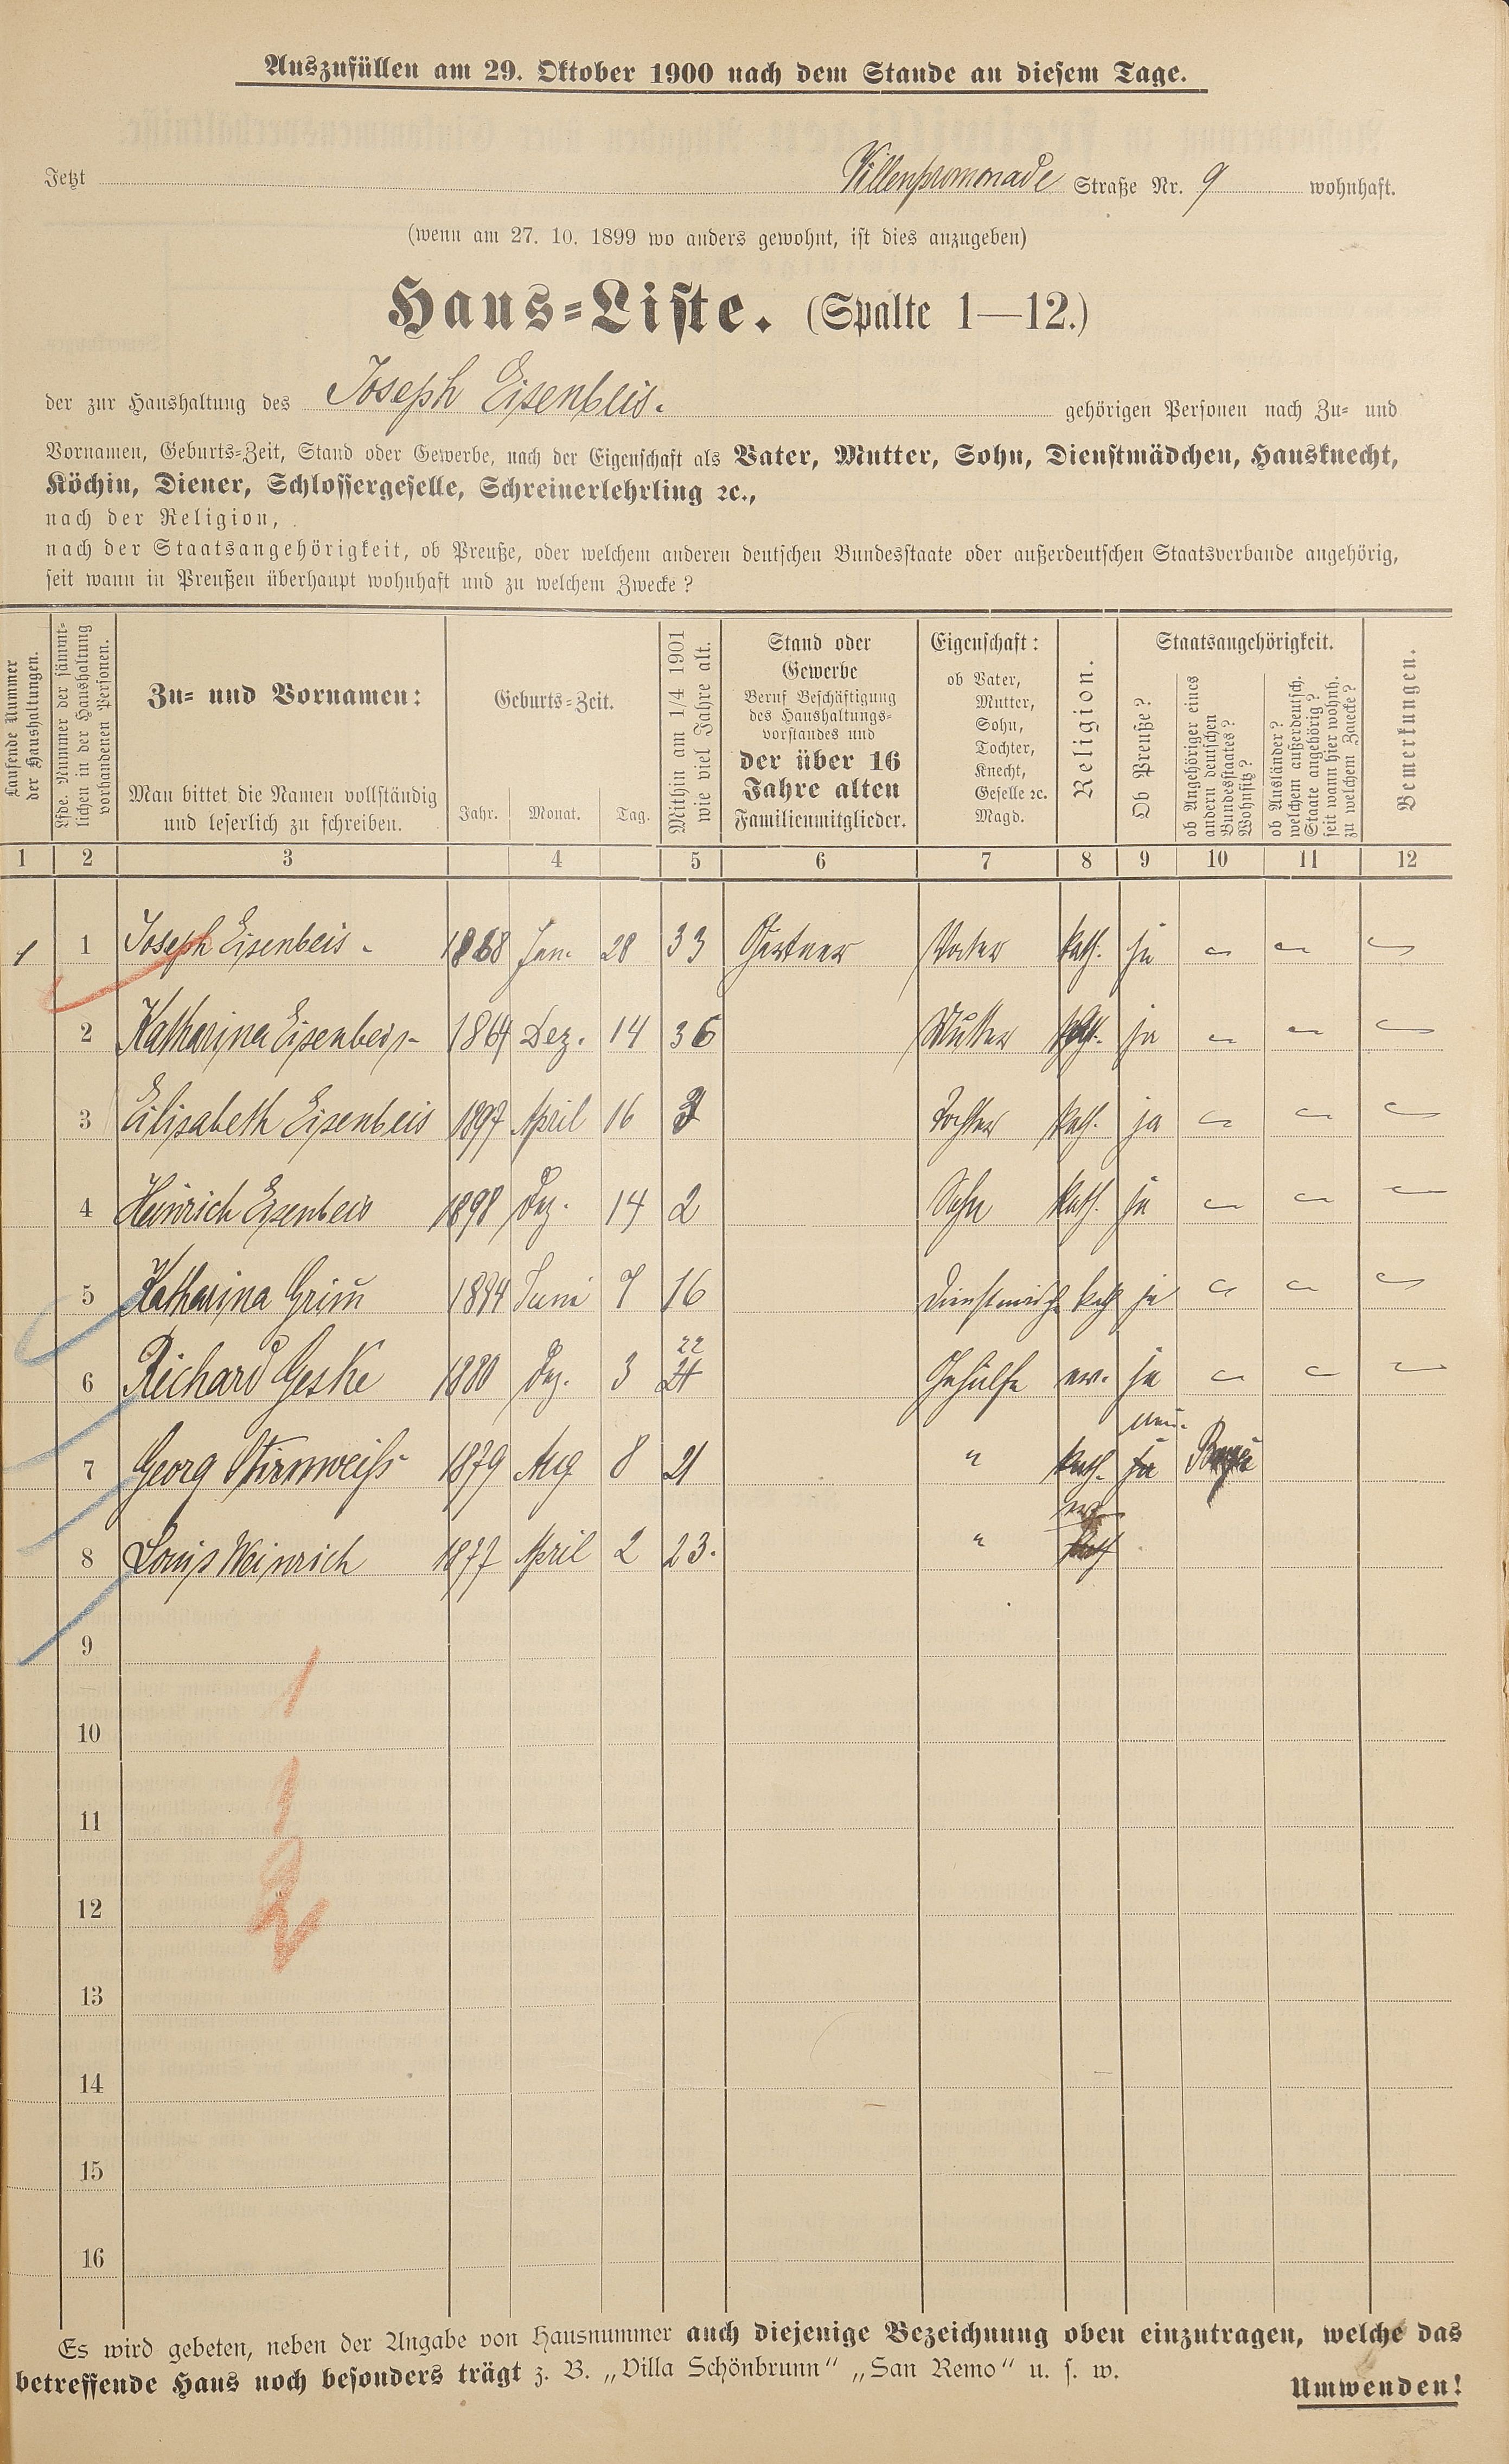 Auszufüllen am 29. Oktober 1900 nach dem Stande an diesem Tage.
Jetzt Villenpromenade Straße Nr. 9 wohnhaft.
(wenn am 27. 10. 1899 wo anders gewohnt, ist dies anzugeben)
Haus-Liste. (Spalte 1—12.)
der zur Haushaltung des Joseph Eisenbeis. gehörigen Personen nach Zu- und
Vornamen, Geburts-Zeit, Stand oder Gewerbe, nach der Eigenschaft als Vater, Mutter, Sohn, Dienstmädchen, Hausknecht,
Köchin, Diener, Schlossergeselle, Schreinerlehrling ꝛc.,
nach der Religion,
nach der Staatsangehörigkeit, ob Preuße, oder welchem anderen deutschen Bundesstaate oder außerdeutschen Staatsverbande angehörig,
seit wann in Preußen überhaupt wohnhaft und zu welchem Zwecke?
Laufende Nummer
der Haushaltungen.
Lfde. Nummer der sämmt-
lichen in der Haushaltung
vorhandenen Personen.
Zu- und Vornamen:
Man bittet die Namen vollständig
und leserlich zu schreiben.
Geburts-Zeit.
Jahr. Monat. Tag.
Mithin am 1/4 1901
wie viel Jahre alt.
Stand oder
Gewerbe
Beruf Beschäftigung
des Haushaltungs-
vorstandes und
der über 16
Jahre alten
Familienmitglieder.
Eigenschaft:
ob Vater,
Mutter,
Sohn,
Tochter,
Knecht,
Geselle ꝛc.
Magd.
Religion.
Staatsangehörigkeit.
Ob Preuße?
ob Angehöriger eines
andern deutschen
Bundesstaates?
Wohnsitz?
ob Ausländer?
welchem außerdeutsch.
Staate angehörig?
seit wann hier wohnh.
zu welchem Zwecke?
Bemerkungen.
1 2 3 4 5 6 7 8 9 10 11 12
1 1 Joseph Eisenbeis. 1868 Jan. 28 33 Gertner Vater kath. ja
2 Katharina Eisenbeis 1864 Dez. 14 36 Mutter kath. ja
3 Eilisabeth Eisenbeis 1897 April 16 3 Tochter kath. ja
4 Heinrich Eisenbeis 1898 Dez. 14 2 Sohn kath. ja
5 Katharina Grim̅ 1884 Juni 7 16 kath ja
22
6 Richard Geske 1880 Dez. 3 21 Gehülfe ev. ja
7 Georg Stirnweiß 1879 Aug 8 21 " kath. ja
ev.
8 Louis Weinrich 1877 April 2 23. " kath
9
1
10
11
1
12
2
13
14
15
16
Es wird gebeten, neben der Angabe von Hausnummer auch diejenige Bezeichnung oben einzutragen, welche das
betreffende Haus noch besonders trägt z. B. „Villa Schönbrunn“ „San Remo“ u. s. w.
Umwenden!